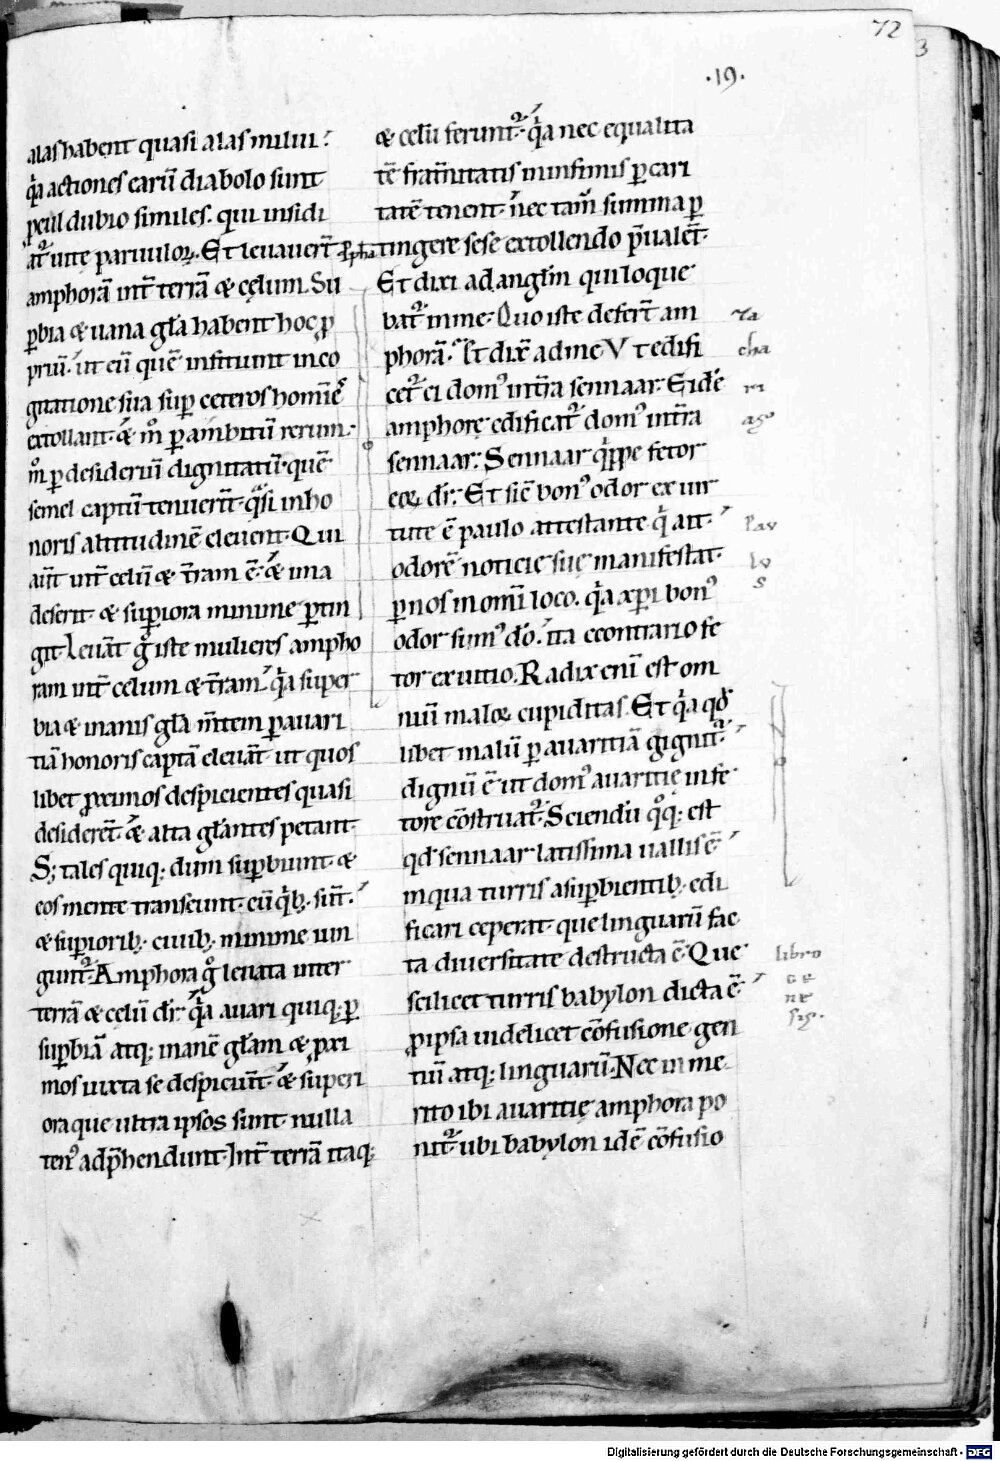 72
3
·19·
alas habent quasi alas milui.
q̇a actiones earū diabolo sunt
ꝓcul dubio similes. qui insidi
at᷑ uite paruuloꝝ. Et leuauer̄t
amphorā int̄ terrā & cęlum. Su
ꝑbia & uana gl̄a habent hoc ꝓ
priū. ut eū quē infitiunt in co
gitatione sua suꝑ ceteros homīes
extollant. & m̊ ꝑ ambitū rerum.
m̊ ꝑ desideriū dignitatū. quē
semel captū tenuer̄t. q̇si in ho
noris altitudinē eleuent. Qui
aūt int̄ celū & t̄ram ē. & una
deserit. & suꝑiora minime ꝑtin
git. Leuāt g̊ iste mulieres ampho
ram int̄ celum & t̄ram. q̇a super
bia & inanis gl̄a m̄tem ꝑ auari
tiā honoris captā eleuāt. ut quos
libet ꝓximos despicientes quasi
deserēt. & alta gl̄antes petant.
S; tales quiq; dum suꝑbiunt. &
eos mente transeunt. cū q̇b; sūt.
& suꝑiorib; ciuib; minime iun
gunt᷑. Amphora g̊ leuata inter
terrā & celū dr̄. q̇a auari quiq; ꝑ
suꝑbiā atq; inanē gl̄am & ꝓxi
mos iuxta se despiciūt. & superi
ora que ultra ipsos sunt. nulla
ten᷒ adp̄hendunt. Int̄ terrā itaq;
& celū ferunt᷑. q̇a nec equalita
tē frat̄nitatis in infimis ꝑ cari
tatē tenent. nec tam̄ summa ꝑ
tingere sese extollendo p̄ualēt.
Et dixi ad anglm̄ qui loque
bat᷑ in me. Quo iste defer̄t am
phorā. Et dix̄ ad me. Vt edifi
cet᷑ ei dom᷒ in t̄ra sennaar. Eidē
amphorę edificat᷑ dom᷒ in t̄ra
sennaar. Sennaar q̇ppe fetor
eoꝝ dr̄. Et sic̄ bon᷒ odor ex uir
tute ē paulo attestante q̇ ait.
odorē noticię suę manifestat
ꝑ nos in om̄i loco. q̇a xp̄i bon᷒
odor sum᷒ dō. ita econtrario fe
tor ex uitio. Radix enī est om
niū maloꝝ cupiditas. Et q̇a qd̄
libet malū ꝑ auaritiā gignit᷑.
dignū ē ut dom᷒ auaritię in fe
tore c̄struat᷑. Sciendū q̊q; est
qd̄ sennaar latissima uallis ē
in qua turris a suꝑbientib; edi
ficari ceperat. que linguarū fac
ta diuersitate destructa ē. Que
scilicet turris babylon dicta ē
ꝓ ipsa uidelicet c̄fusione gen
tiū atq; linguarū. Nec in me
rito ibi auaritię amphora po
nit᷑. ubi babylon idē c̄fusio
za
cha
ri
as
Pau
lu
s
libro
ge
ne
sis.
Digitalisierung gefördert durch die Deutsche Forschungsgemeinschaft - DFG